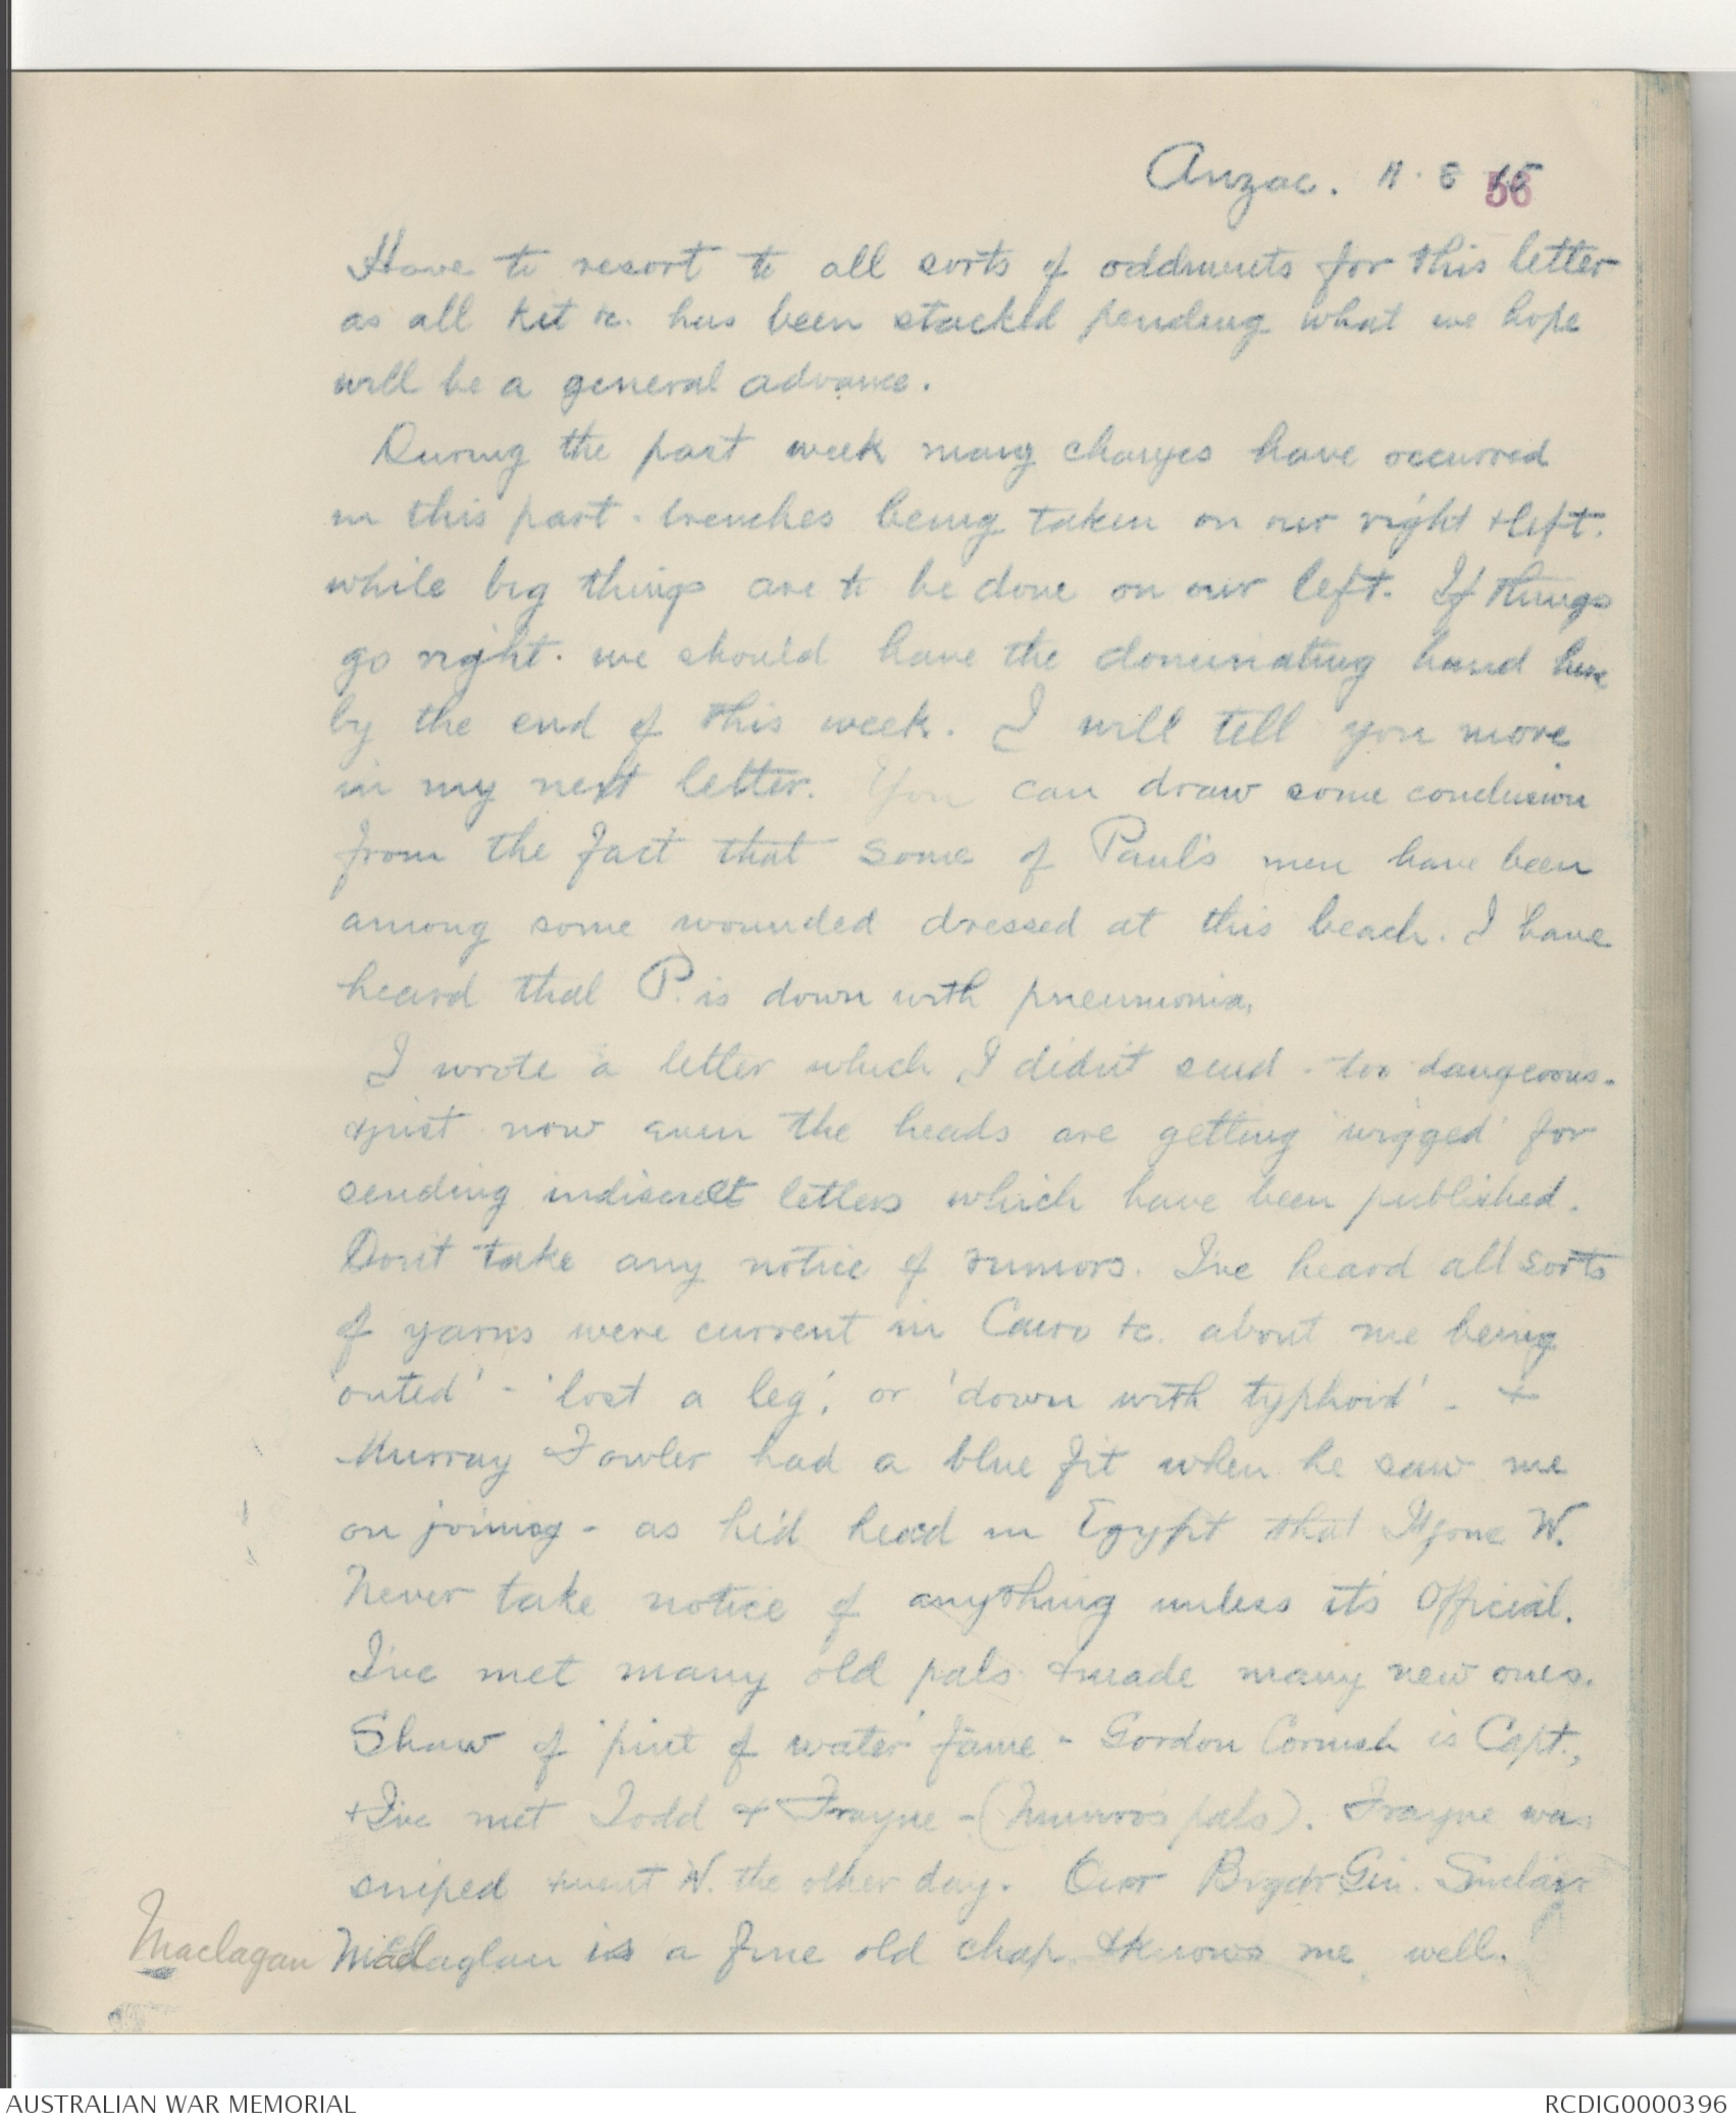 Anzac. 11. 8 15
56
Have to resort to all sorts of oddments for this letter
as all kit &c. has been stacked pending what we hope
will be a general advance.
During the past week many changes have occurred
in this part - trenches being taken on our right & left.
while big things are to be done on our left. If things
go right. we should have the dominating hand here
by the end of this week. I will tell you more
in my next letter. You can draw some conclusion
from the fact that some of Paul's men have been
among some wounded dressed at this beach. I have
heard that P. is down with pneumonia.
I wrote a letter which I didn't send - too dangerous.
& just now even the heads are getting 'wigged' for
sending indiscreet letters which have been published.
Don't take any notice of rumors. I've heard all sorts
of yarns were current in Cairo &c. about me being
'outed' - 'lost a leg', or 'down with typhoid' - &
Murray Fowler had a blue fit when he saw me
on joining - as he'd heard in Egypt that I'd gone W.
Never take notice of anything unless it's official.
I've met many old pals & made many new ones.
Shaw of 'pint of water' fame - Gordon Cornish is Capt.,
& I've met Todd & Frayne - (Munro's pals). Frayne was
sniped & went W. the other day. Our Brigdr Gen. Sinclair
Maclagan
is a fine old chap & knows me well.
AUSTRALIAN WAR MEMORIAL
RCDIG0000396